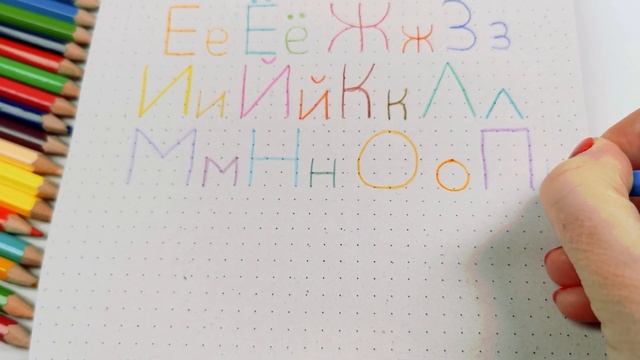 Ее Ёё Жж Зз
Ии Йй Кк Лл
Мм Нн Оо П